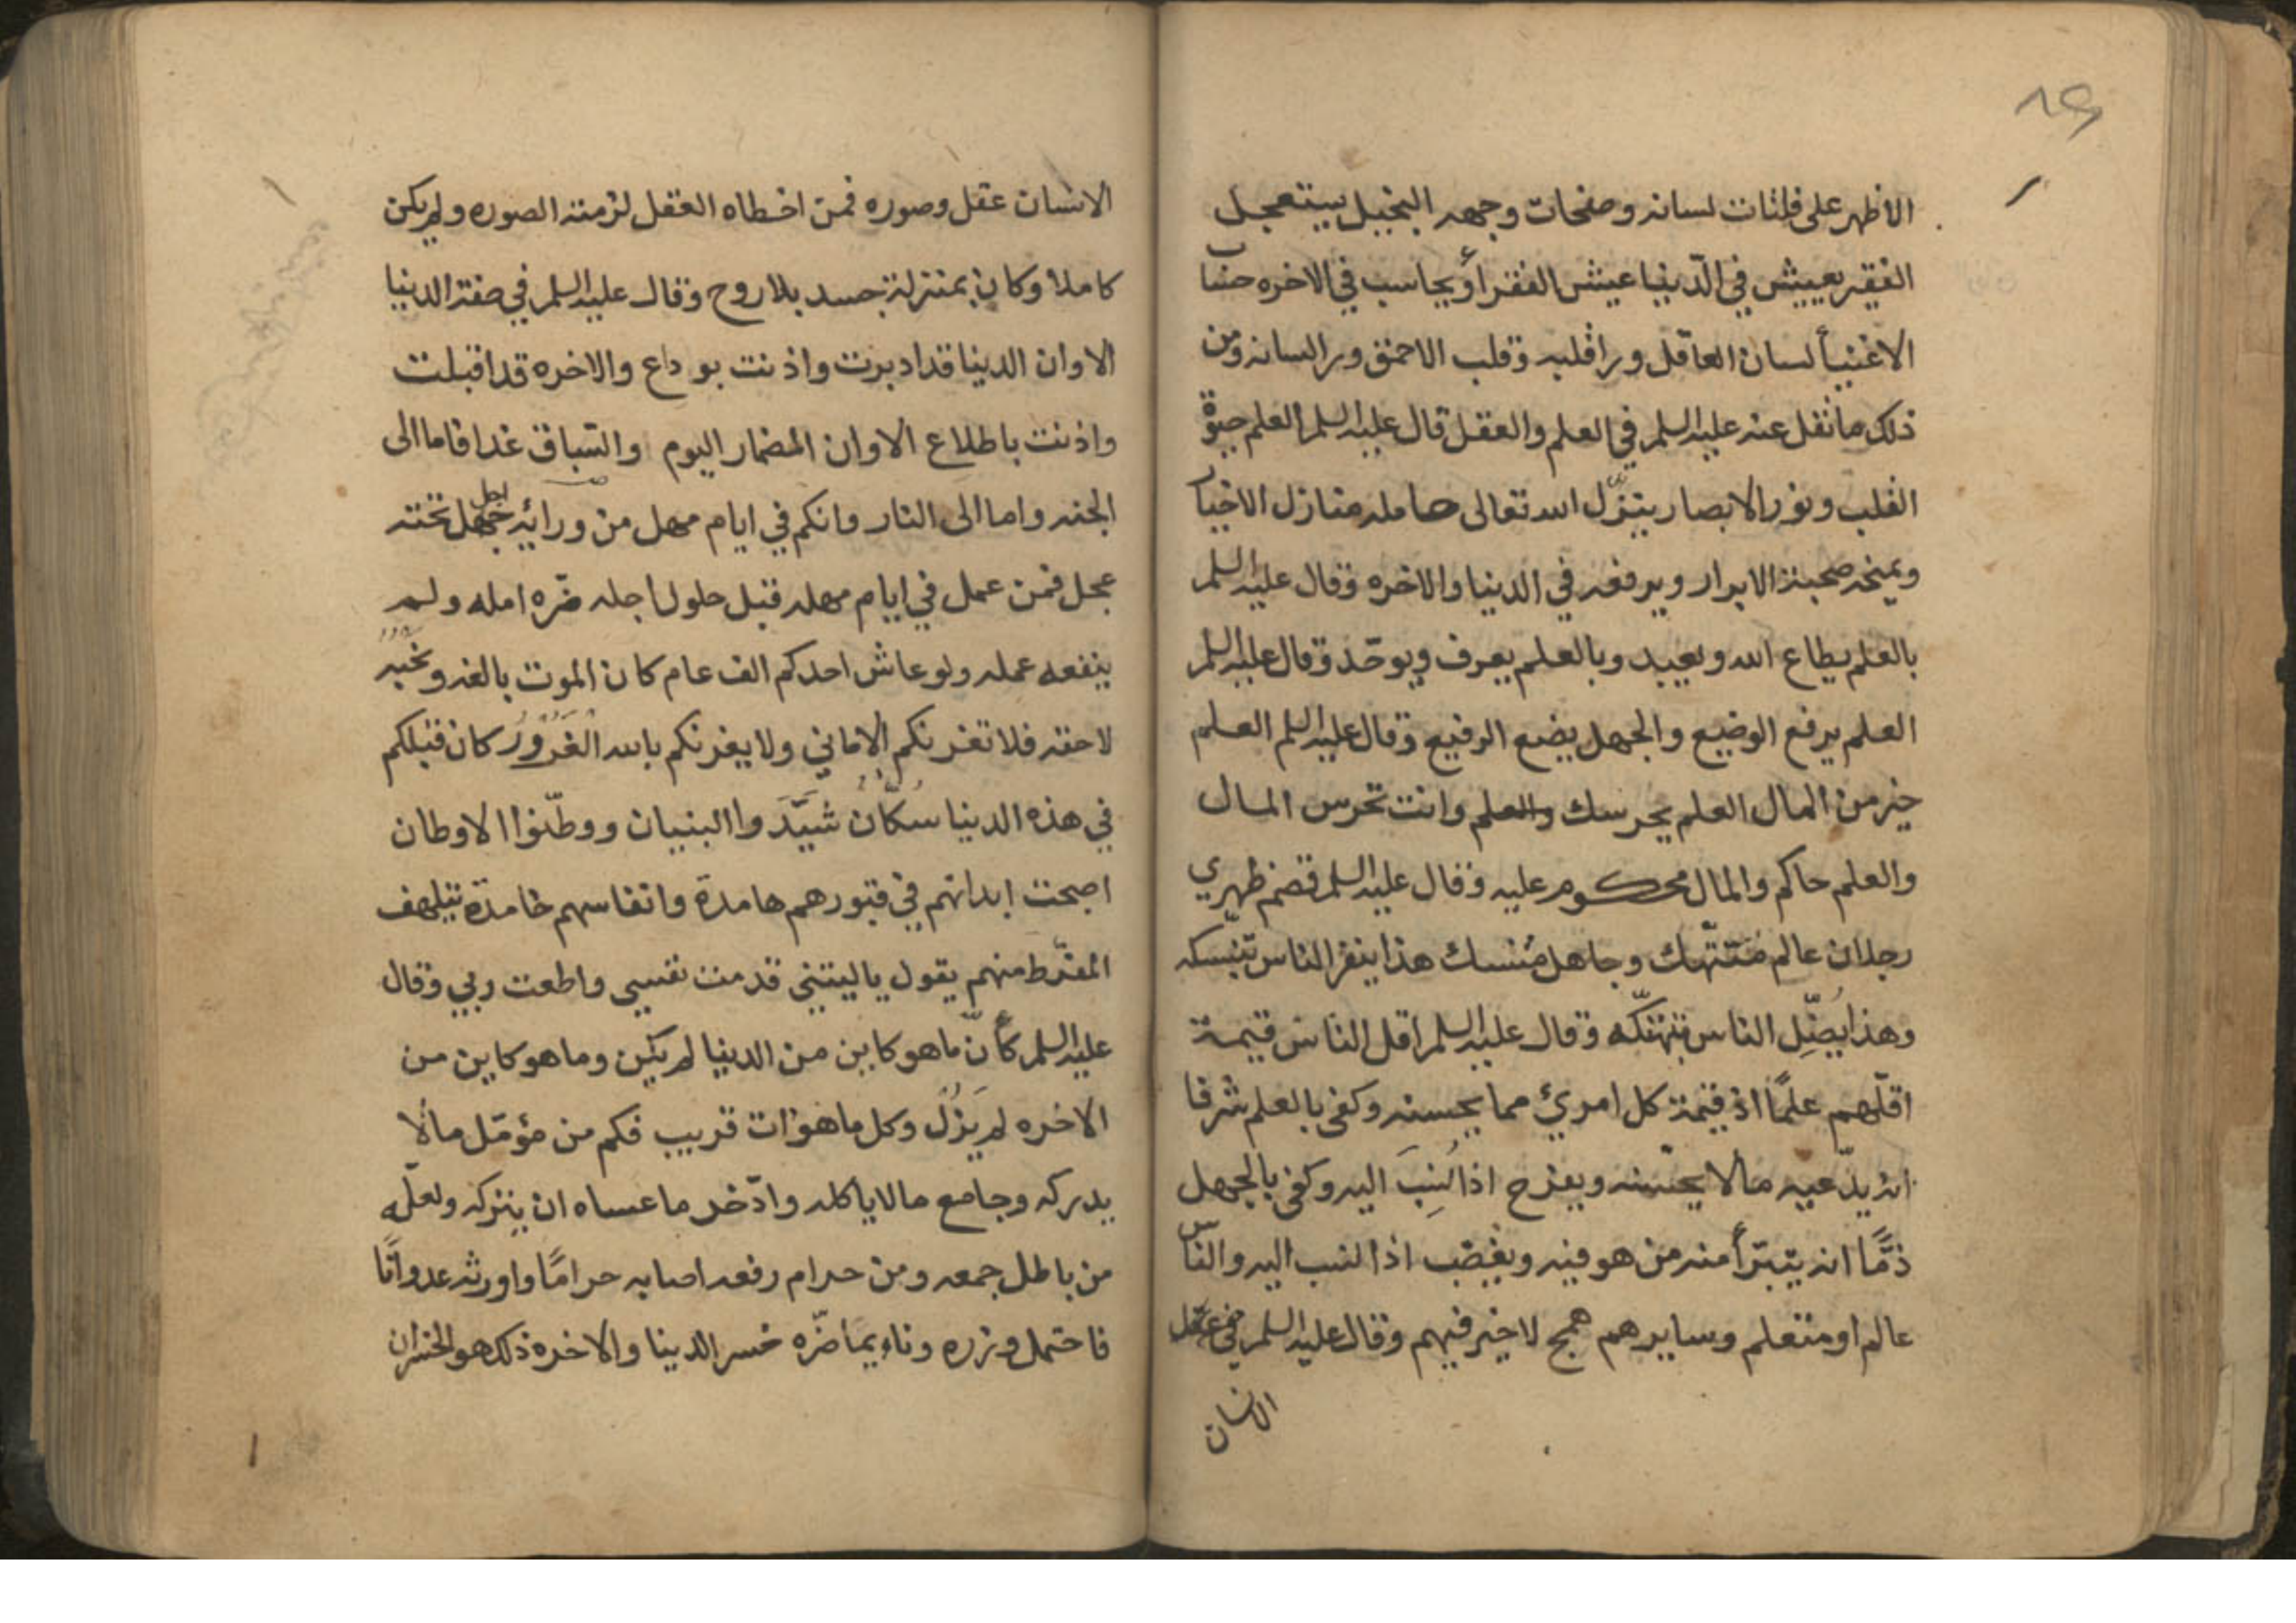 ٨٤
الا ظهر على فلتات لسانه وصفحات وجهه البخيل يستعجل
الفقر يعيش في الدّنيا عيش الفقرأ ويحاسب في الاخره حساب
الاغنيأ لسان العاقل ورا قلبه وقلب الاحمق ورا لسانه ومن
ذلك ما نقل عنه عليه السلم في العلم والعقل قال عليه السلم العلم حيوة
القلب ونور الابصار ينزّل الله تعالى حامله منازل الاخيا
ويمنحه صحبة الابرار ويرفعه في الدنيا والاخره وقال عليه السلم
بالعلم يطاع الله ويعبد وبالعلم يعرف ويوحّد وقال عليه السلم
العلم يرفع الوضيع والجهل يضع الرفيع وقال عليه السلم العلم
خير من المال العلم يحرسك والعلم وانت تحرس المال
والعلم حاكم والمال محكوم عليه وقال عليه السلم قصم ظهري
رجلان عالم متهتّك وجاهل متنسك هذا ينفر الناس بتنسّكه
وهذا يُضِّل الناس بتهتكّه وقال عليه السلم اقل الناس قيمة
اقلّهم علمًا اذ قيمة كل امرئ مما يحسنه وكفى بالعلم شرفا
انه يدّعيه مالا يحسنه ويفرح اذا نُسِبَ اليه وكفى بالجهل
ذمًّا انه يتبرّأ منه من هو فيه ويغضب اذا نسب اليه والناس
عالم او متعلم وسايرهم همج لا خير فيهم وقال عليه السلم في عقل
الانسان
الانسان عقل وصوره فمن اخطاه العقل لزمته الصوره ولم يكن
كاملا وكان بمنزلة جسد بلا روح وقال عليه السلم في صفة الدنيا
الا وان الدنيا قد ادبرت واذنت بوداع والاخره قد اقبلت
واذنت باطلاع الا وان المضمار اليوم والسّباق غدا فاما الى
الجنه واما الى النار وانكم في ايام مهل من ورائه اجل تحته
عجل فمن عمل في ايام مهله قبل حلول اجله ضرّه امله ولم
ينفعه عمله ولو عاش احدكم الف عام كان الموت بالغه ونحبُه
لاحقه فلا تغرنكم الاماني ولا يغرنكم بالله الغَرُورُ كان قبلكم
في هذه الدنيا سُكّانٌ شيَّدَوا البنيان ووطّنوا الاوطان
اصبحت ابدانهم في قبورهم هامدة وانفاسهم خامدة يتلهف
المفرّط منهم يقول يا ليتني قدمت نفسي واطعت ربي وقال
عليه السلم كأنّ ما هو كاين من الدنيا لم يكن وما هو كاين من
الاخره لم يَزُلْ وكل ما هو ات قريب فكم من مؤمّل مالا
يدركه وجامع مالا ياكله وادّخر ما عساه ان يتركه ولعلّه
من باطل جمعه ومن حرام رفعه اصابه حرامًا واورثه عدوانًا
فاحتمل وزره وناء بما ضرّه خسر الدنيا والاخره ذلك هو الخسران